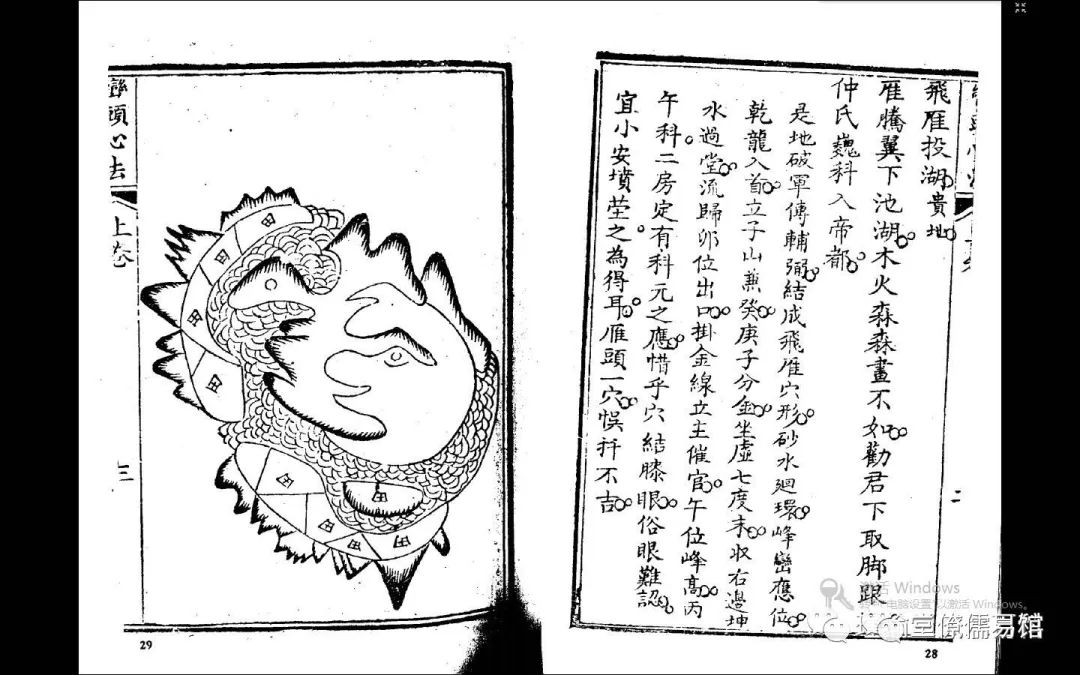 飛雁投湖貴地
雁騰翼下池湖木火森森畫不如勸君下取脚跟
仲氏巍科入帝都
是地破軍傳輔弼結成飛雁穴形砂水廻環峰巒應位
乾龍入首立子山兼癸庚子分金坐虛七度未收右邊坤
水過堂流歸卯位出口掛金線立主催官午位峰高丙
午科二房定有科元之應惜乎穴結膝眼俗眼難認
宜小安墳塋之為得耳雁頭一穴悞扦不吉
二
28
巒頭心法
上卷
三
田
田
田
田
田
田
田
田
29
Windows
Windows。